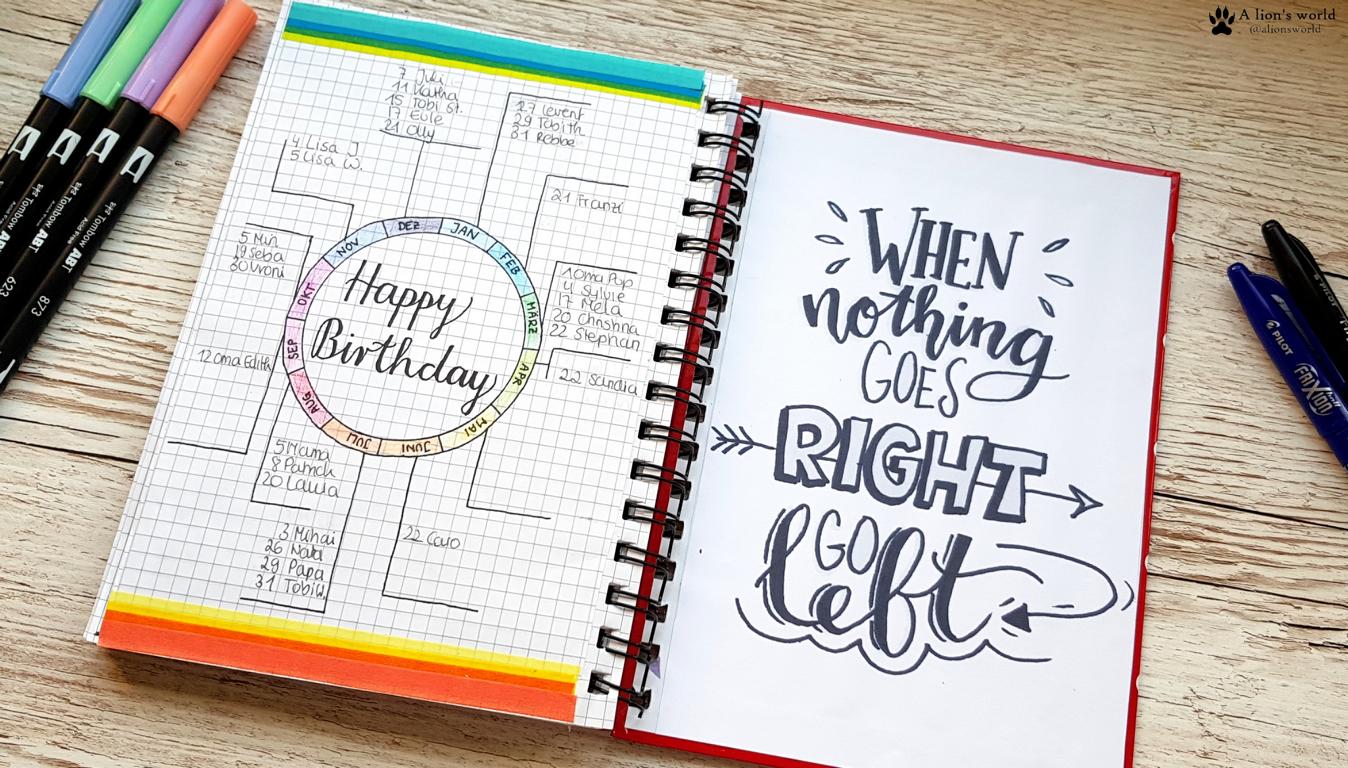 A lion's world
@alionsworld
7 Juli
11 Katha
15 Tobi St.
17 Eule
21 Olly
27 Levent
29 Tabith
31 Rebbe
4 Lisa J.
5 Lisa W.
21 Franzi
5 Miri
19 Seba
30 Vroni
1 Oma Pop
4 Sylvie
17 Mela
20 Christina
22 Stephan
22 Sandra
12 Oma Edith
DEZ
JAN
FEB
MÄRZ
APR
MAI
JUNI
JULI
AUG
SEP
OKT
NOV
Happy
Birthday
5 Mama
8 Patrick
20 Laura
3 Mihai
26
29 Papa
31 Tobi W.
22 Caro
WHEN
nothing
GOES
RIGHT
GO
left
Tombow ABT
Tombow ABT
623
873
PILOT
FRIXION ball
PILOT